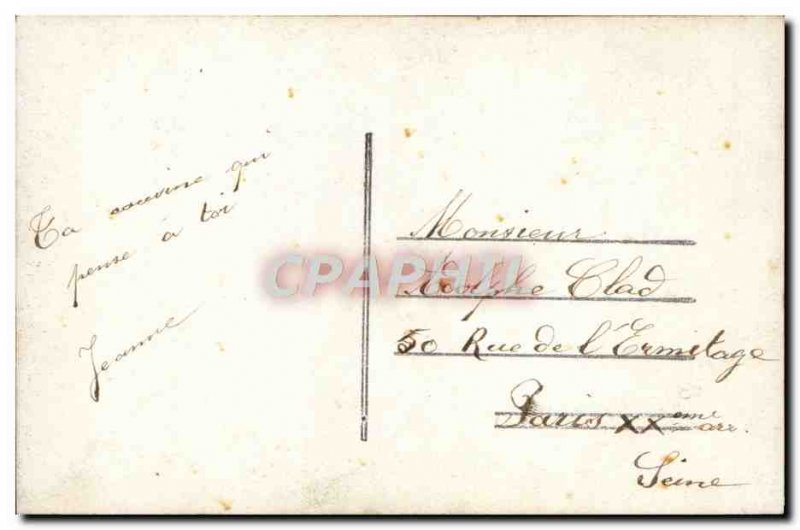 Ta couvine qui
pense à toi
Jeanne
CPAPHIL
Monsieur
Adolphe Clad
50 Rue de l'Ermitage
Paris XXeme arr.
Seine